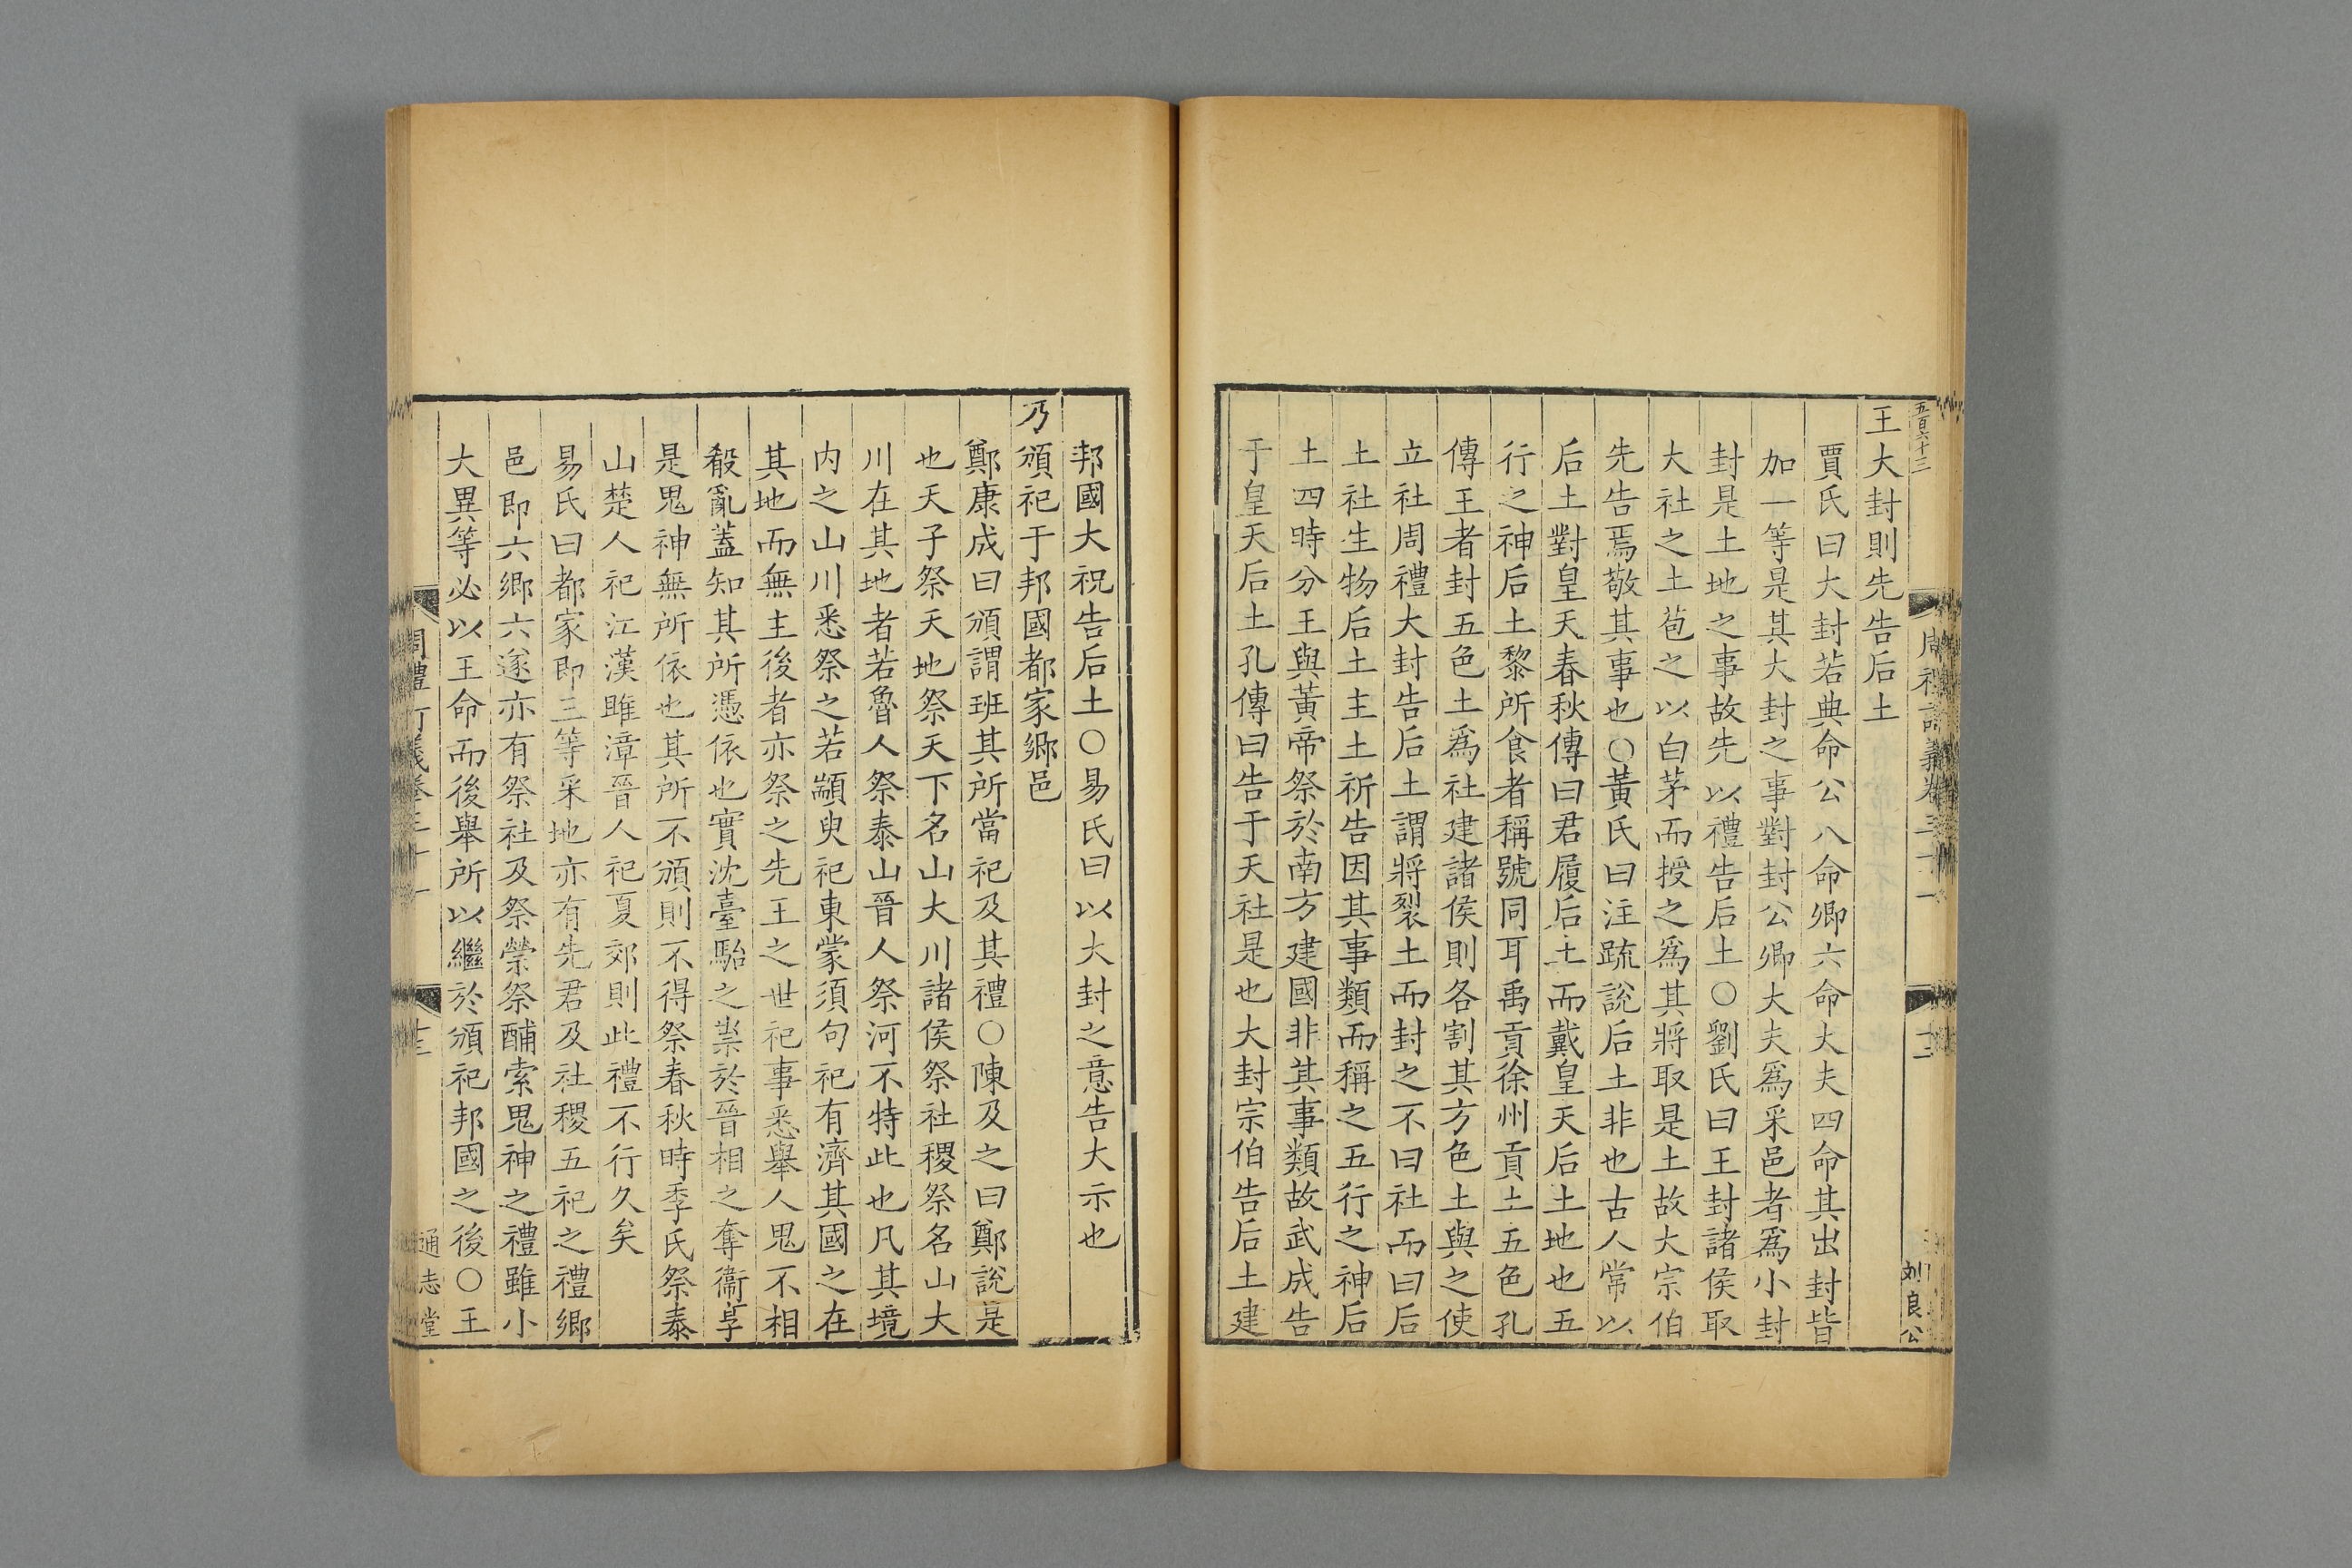 五百六十三
王大封則先告后土
賈氏曰大封若典命公八命卿六命大夫四命其出封皆
加一等是其大封之事對封公卿大夫爲采邑者爲小封
封是土地之事故先以禮告后土○劉氏曰王封諸侯取
大社之土苞之以白茅而授之爲其將取是土故大宗伯
先告焉敬其事也○黃氏曰注疏說后土非也古人常以
后土對皇天春秋傳曰君履后土而戴皇天后土地也五
行之神后土黎所食者稱號同耳禹貢徐州貢土五色孔
傳王者封五色土爲社建諸侯則各割其方色土與之使
立社周禮大封告后土謂將裂土而封之不曰社而曰后
土社生物后土主土祈告因其事類而稱之五行之神后
土四時分王與黃帝祭於南方建國非其事類故武成告
于皇天后土孔傳曰告于天社是也大封宗伯告后土建
邦國大祝告后土○易氏曰以大封之意告大示也
乃頒祀于邦國都家鄉邑
鄭康成曰頒謂班其所當祀及其禮○陳及之曰鄭說是
也天子祭天地祭天下名山大川諸侯祭社稷祭名山大
川在其地者若魯人祭泰山晉人祭河不特此也凡其境
內之山川悉祭之若顓臾祀東蒙須句祀有濟其國之在
其地而無主後者亦祭之先王之世祀事悉舉人鬼不相
殽亂蓋知其所憑依也實沈臺駘之祟於晉相之奪衞享
是鬼神無所依也其所不頒則不得祭春秋時季氏祭泰
山楚人祀江漢雎漳晉人祀夏郊則此禮不行久矣
易氏曰都家即三等采地亦有先君及社稷五祀之禮鄉
邑即六鄉六遂亦有祭社及祭禜祭酺索鬼神之禮雖小
大異等必以王命而後舉所以繼於頒祀邦國之後○王
周禮訂義卷三十一
通志堂